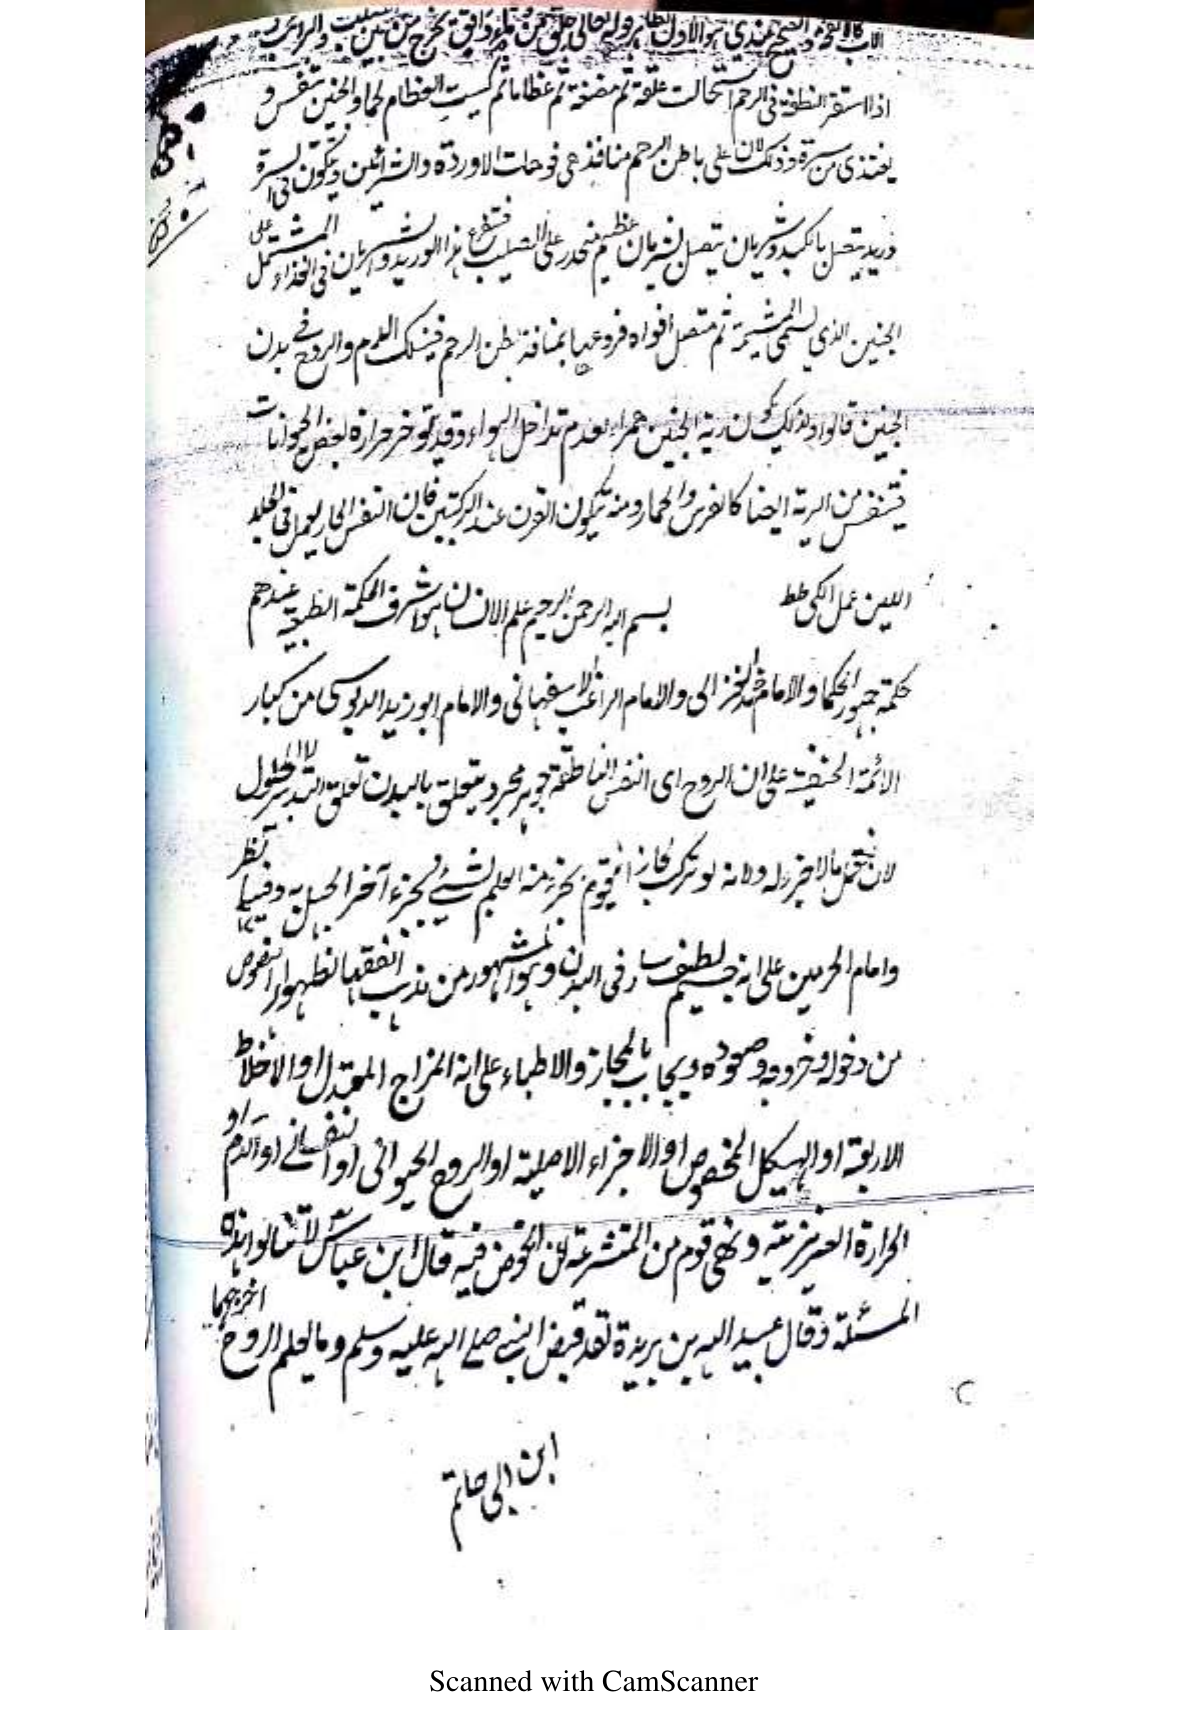 هو الاول الظاهر وله تعالى خلق من ماء دافق يخرج من بين الصلب والترائب
اذا استقر النطفة فى الرحم استحالت علقة ثم مضغة ثم عظاما ثم كسيت العظام لحما والجنين يتنفس و
يغتذى من سرة وذلك لان على باطن الرحم منافذ هى فوهات الاوردة والشرائين ويكون فى السرة
وريد يتصل بالكبد وشريان يتصل بشريان عظيم منحدر على الصلب فتفرع هذا الوريد والشريان فى الغذاء المشتمل على
الجنين الذى يسمى المشيمة ثم متصل افواه فروعها بمنافذ بطن الرحم فيسلك الدم والروح فى بدن
الجنين قالوا ولذلك يكون رية الجنين حمراء لعدم تداخل الهواء وقد توفر حرارة بعض الحيوانات
فيتنفس من الرية ايضا كالفرس والحمار ومنه يكون القرن عند الركبتين فان النفس الحار يعمل فى الجلد
اللين عمل الكى طط بسم الله الرحمن الرحيم علم الانسان هو اشرف الحكمة الطبيعية عندهم
حكمة جمهور الحكما والامام محمد الغزالى والامام الراغب الاسفهانى والامام ابو زيد الدبوسى من كبار
الائمة الحنفية على ان الروح اى النفس الناطقة جوهر مجرد يتعلق بالبدن تعلق التدبير لا الحلول
لان تعقل ما لا جزء له ولانه لو تركب لجاز ان يقوم بجزء منه العلم بشئ وبجزء آخر الجهل به وفيهما نظر
وامام الحرمين على انه جسم لطيف سار فى البدن وهو المشهور من مذهب الفقها لظهور النصوص
من دخوله وخروجه وصعوده ويجاب بالمجاز والاطباء على انه المزاج المعتدل او الاخلاط
الاربعة او الهيكل المخصوص او الاجزاء الاصلية او الروح الحيوانى او النفسانى او الدم او
الحرارة الغريزية ونهى قوم من المتشرعة عن الخوض فيه قال ابن عباس لا تسألوا هذه
المسئلة وقال عبد الله بن بريدة لقد قبض النبى صلى الله عليه وسلم وما يعلم الروح اخرجهما
ابن ابى حاتم
Scanned with CamScanner